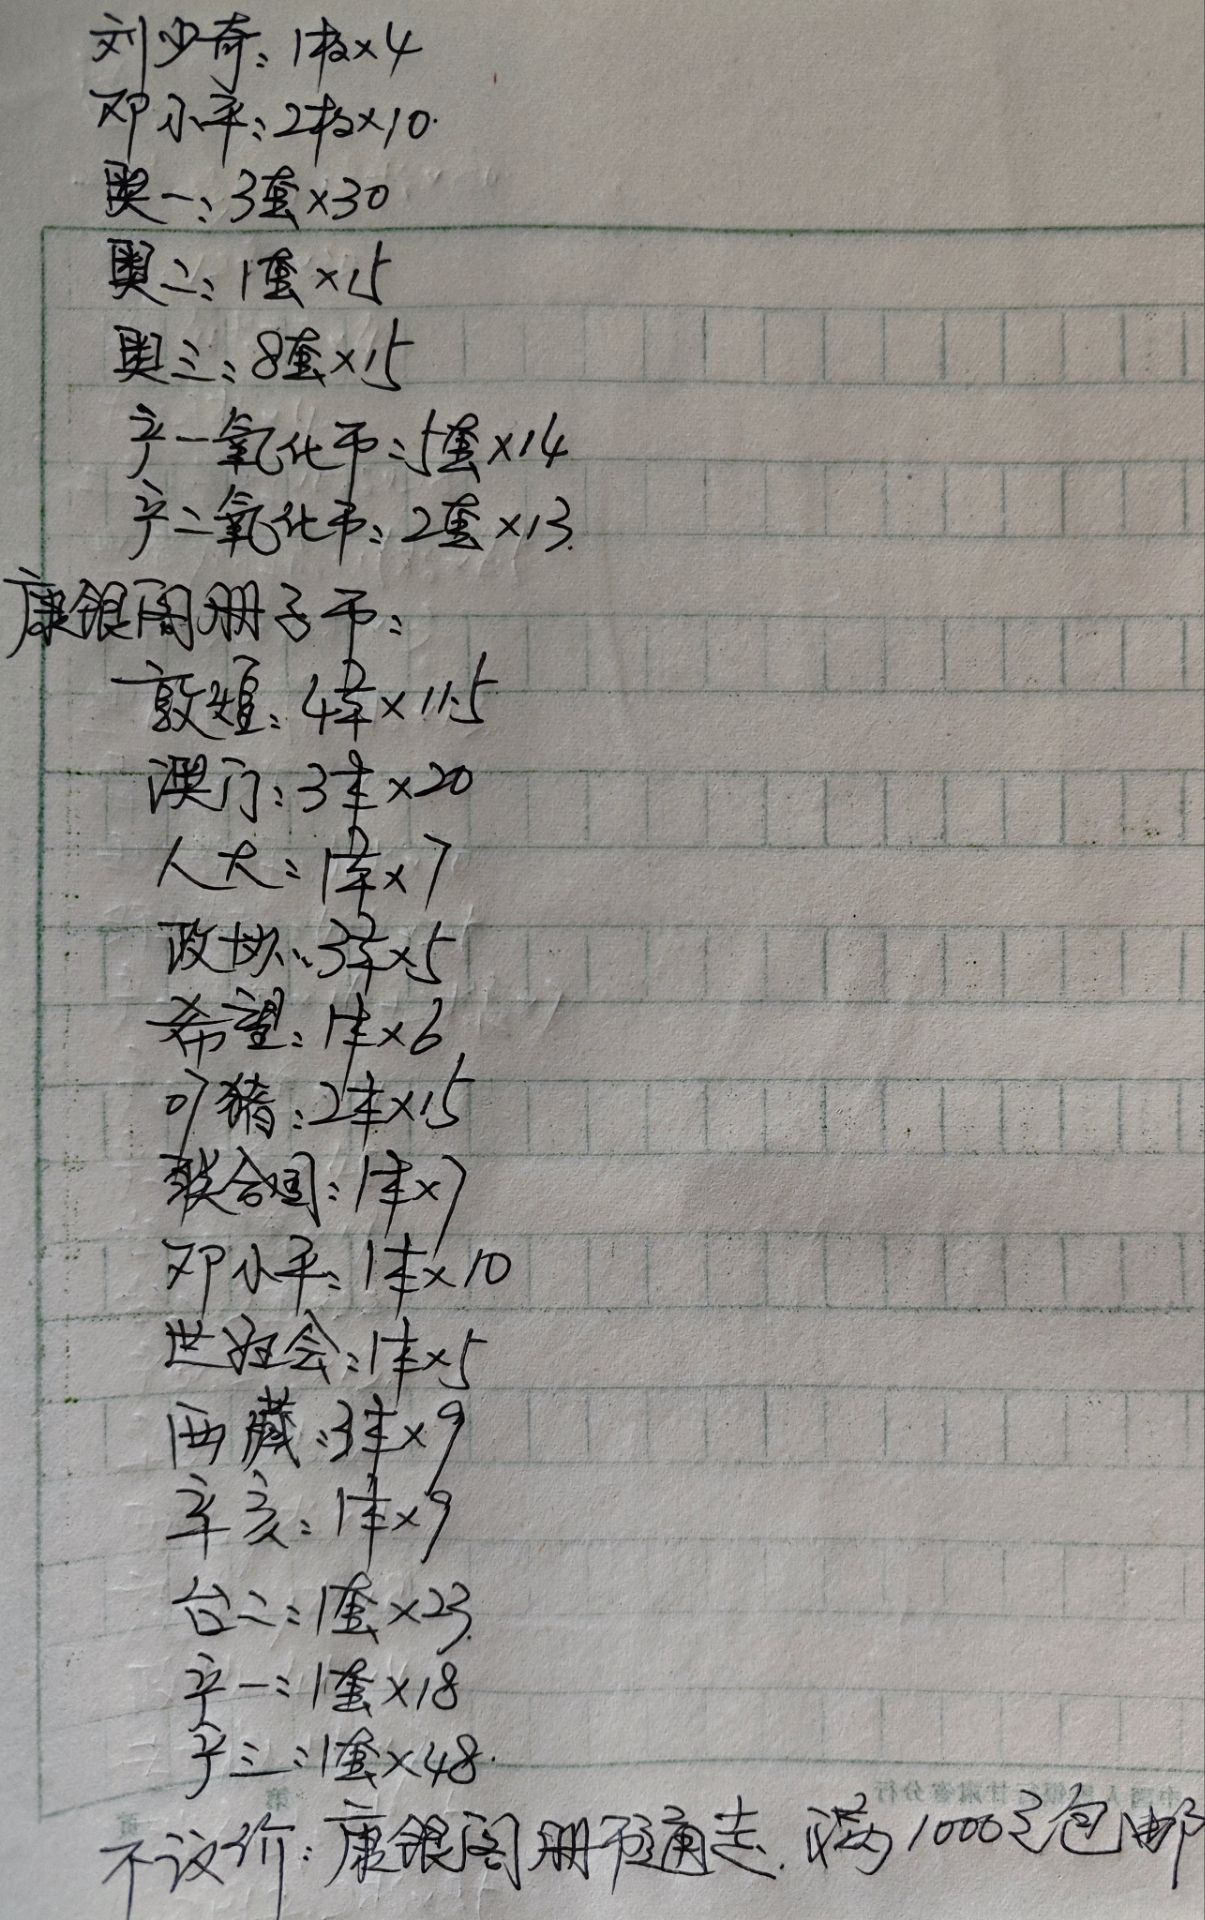 刘少奇：1枚×4
邓小平：2枚×10.
奥一：3套×30
奥二：1套×15
奥三：8套×15
产一氧化币：5套×14
产二氧化币：2套×13.
康银阁册子币：
敦煌：4本×11.5
澳门：3本×20
人大：1本×7
政协：3本×5
希望：1本×6
07猪：2本×15
联合国：1本×7
邓小平：1本×10
世妇会：1本×5
西藏：3本×9
辛亥：1本×9
台二：1套×23.
产一：1套×18
产三：1套×48.
中国人民银行甘肃省分行
第
页
不议价：康银阁册币通走.满1000元包邮